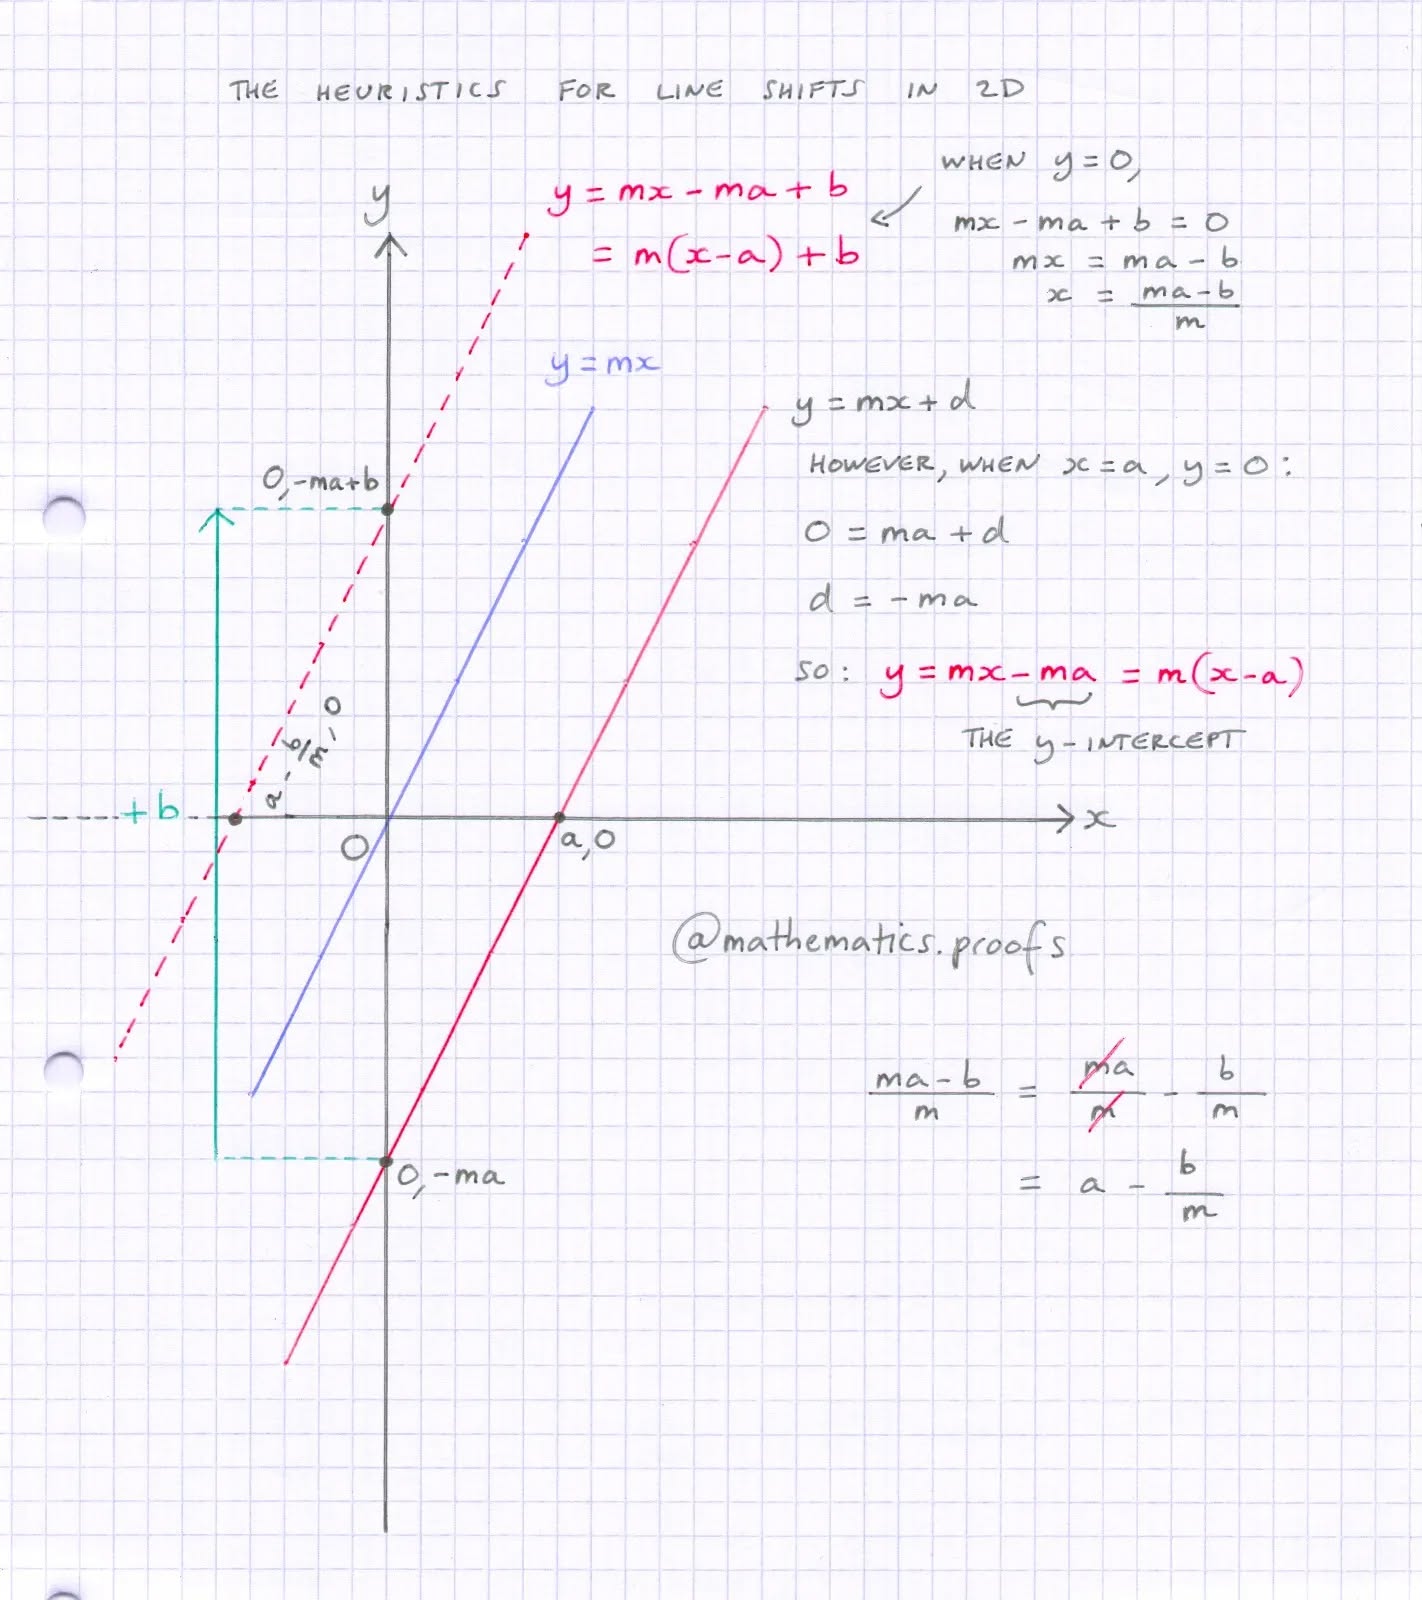 THE HEURISTICS FOR LINE SHIFTS IN 2D
y
y = mx - ma + b
= m(x-a) + b
WHEN y=0,
mx - ma + b = 0
mx = ma - b
x = ma-b
m
y = mx
y = mx + d
HOWEVER, WHEN x=a, y=0:
0 = ma + d
d = -ma
SO: y = mx - ma = m(x-a)
THE y-INTERCEPT
0,-ma+b
a - b/m, 0
+b
O
a,0
x
@mathematics.proofs
ma-b = ma - b
m m m
= a - b
m
0,-ma